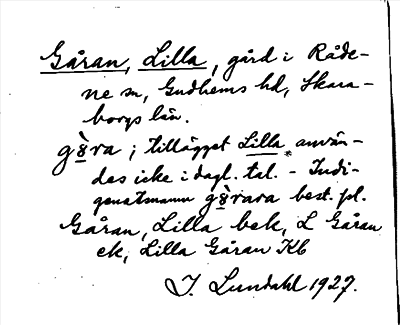 Gåran, Lilla, gård i Råde-
ne sn, Gudhems hd, Skara-
borgs län.
gå̀ra; tillägget Lilla använ-
des icke i dagl. tal. - Indi-
genatsnamn gå̀rara best. pl.
Gåran, Lilla bek, L Gåran
ek, Lilla Gåran Kb
I. Lundahl 1927.